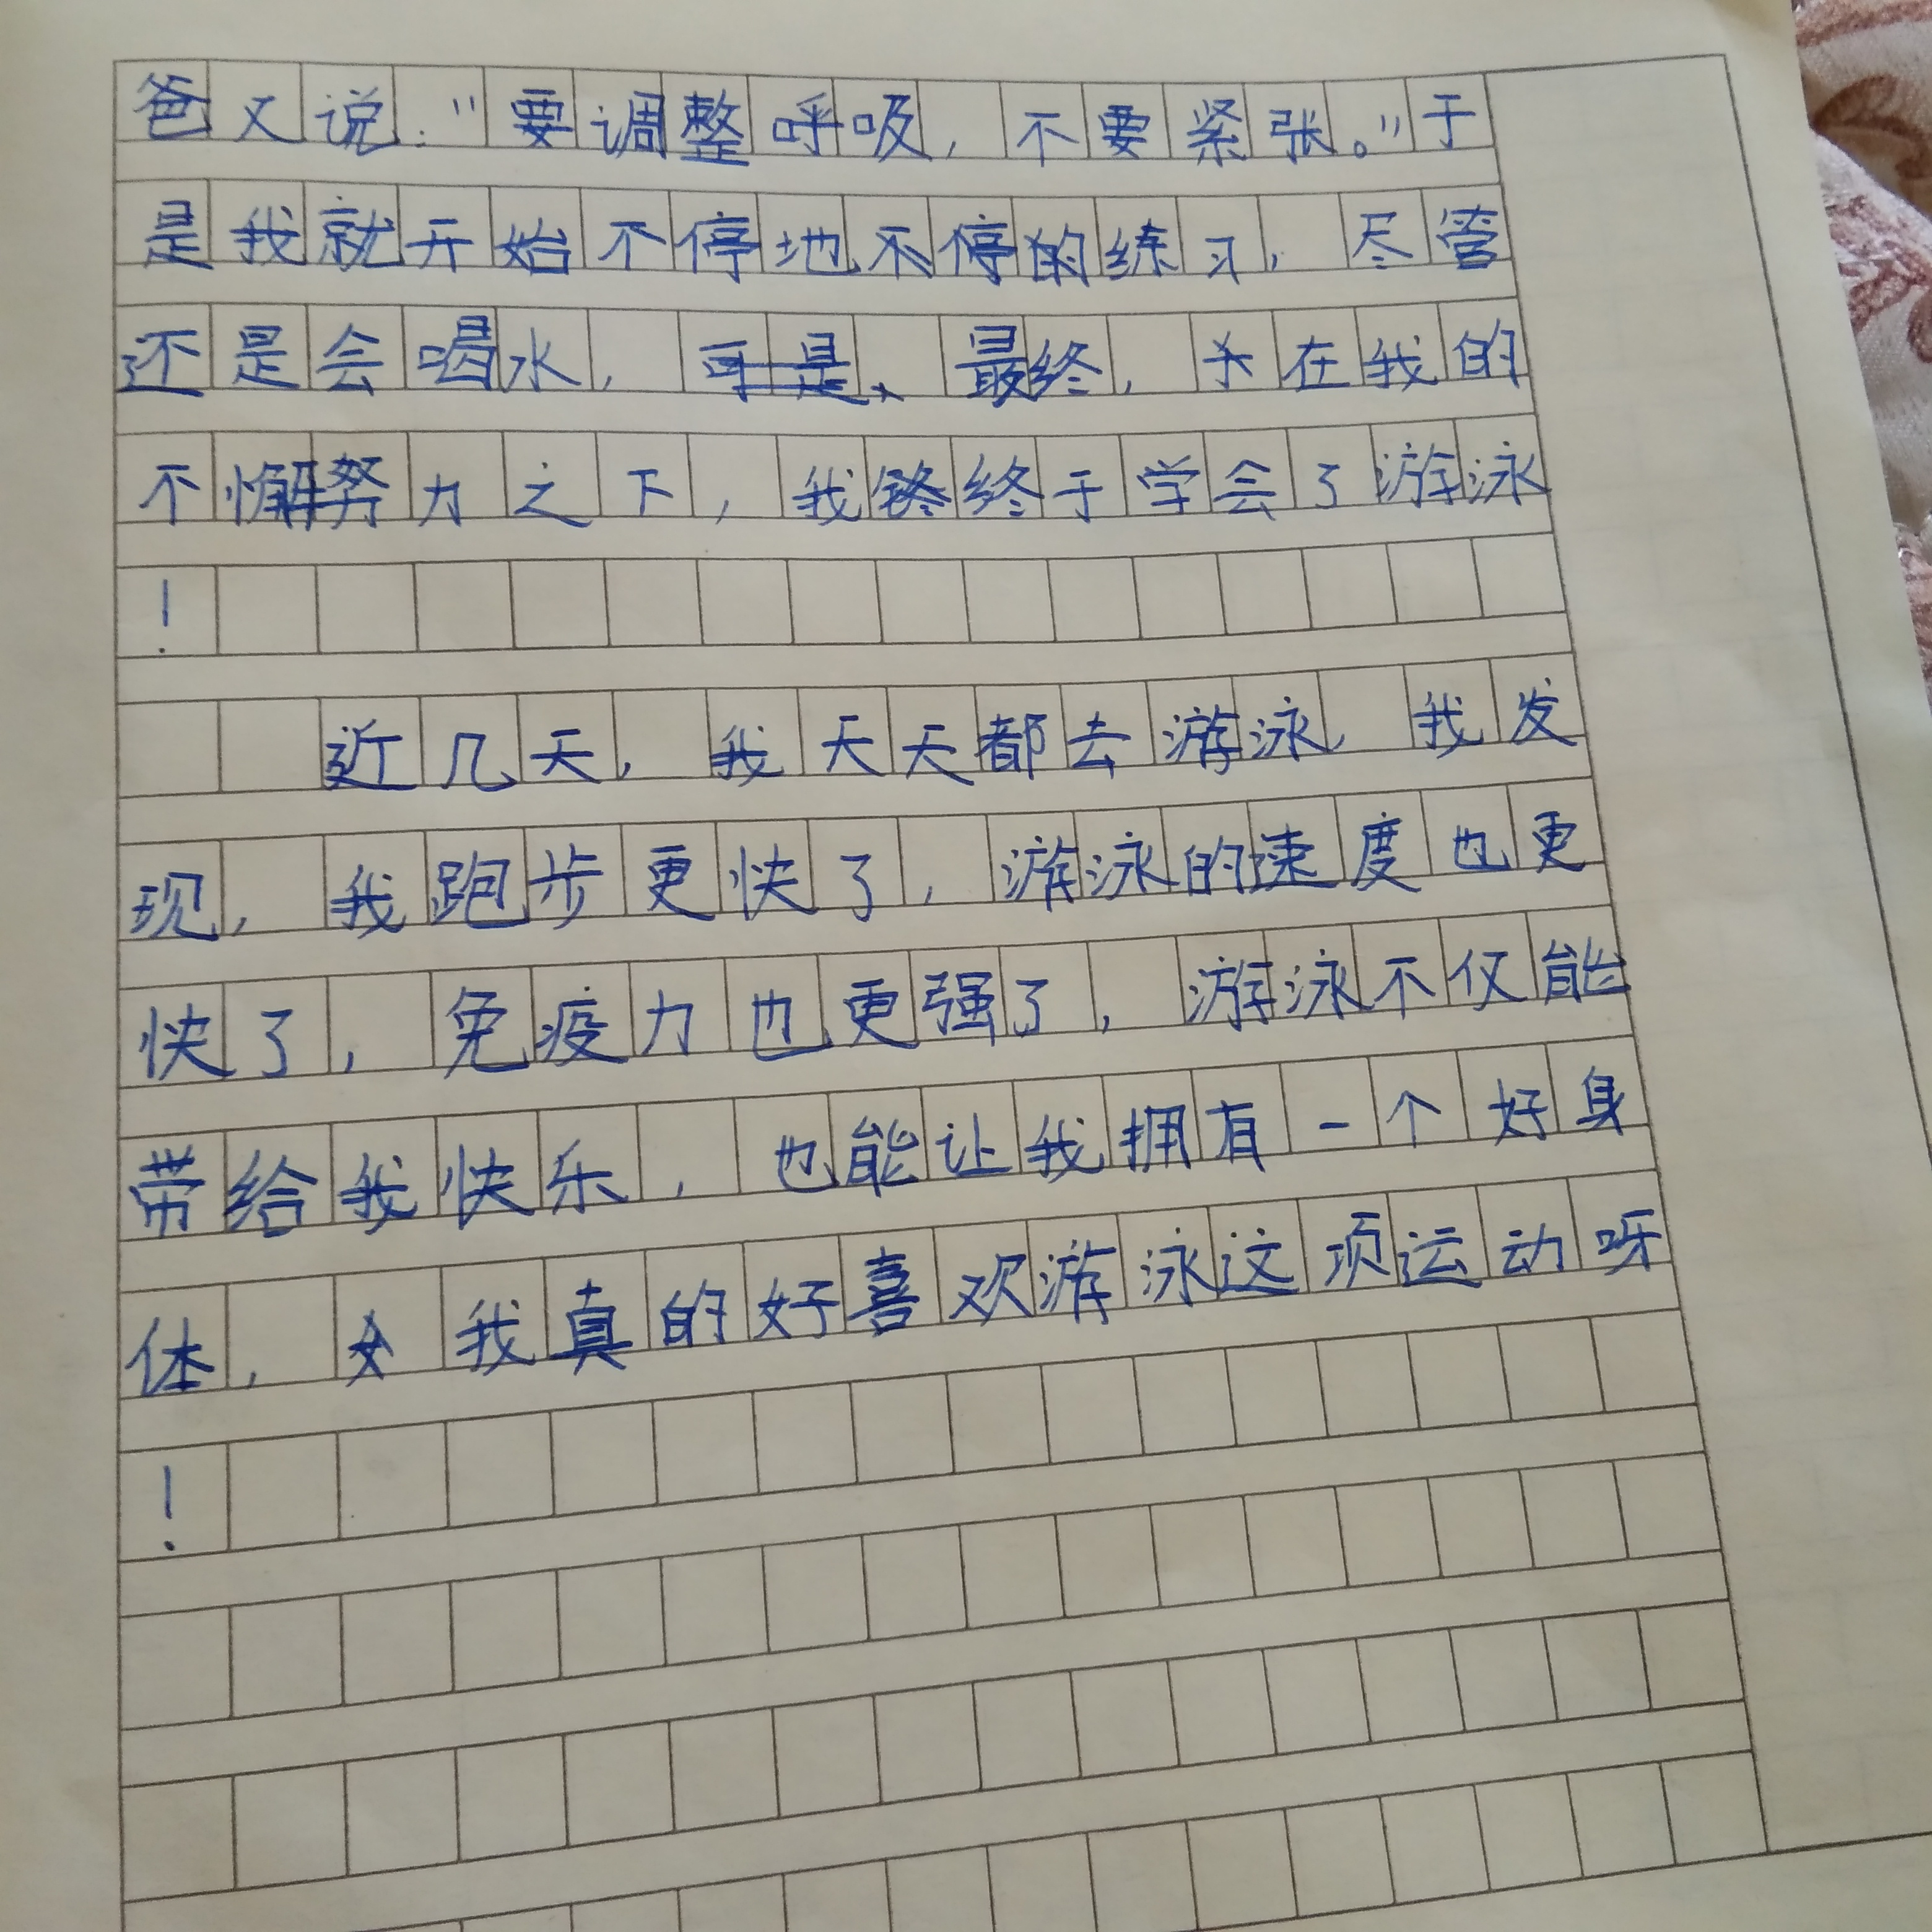 爸又说:"要调整呼吸,不要紧张。"于
是我就开始不停地不停的练习,尽管
还是会喝水,可是、最终,在我的
不懈努力之下,我终终于学会了游泳
!
近几天,我天天都去游泳,我发
现,我跑步更快了,游泳的速度也更
快了,免疫力也更强了,游泳不仅能
带给我快乐,也能让我拥有一个好身
体,我真的好喜欢游泳这项运动呀
!